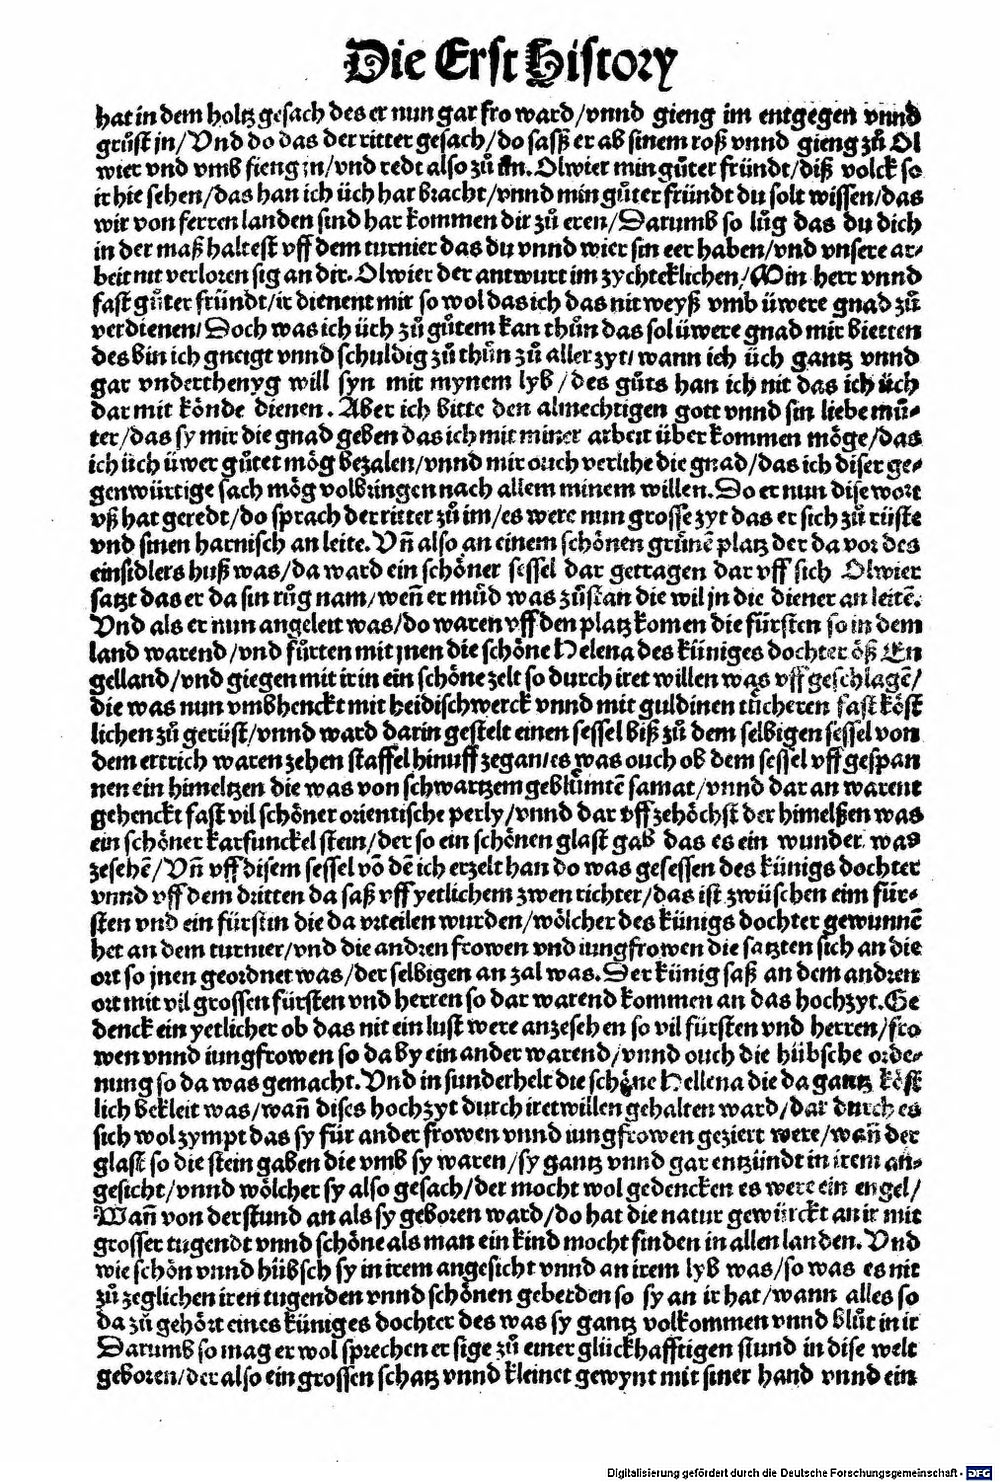 Die Erst History
hat in dem holtz gesach des er nun gar fro ward/vnnd gieng im entgegen vnnd
grůst jn/Vnd do das der ritter gesach/do sasß er ab sinem roß vnnd gieng zů Ol
wier vnd vmb fieng in/vnd redt also zů im. Olwier min gůter fründt/diß volck so
ir hie sehen/das han ich üch har bracht/vnnd min gůter fründt du solt wissen/das
wir von ferren landen sind har kommen dir zů eren/Darumb so lůg das du dich
in der maß haltest vff dem turnier das du vnnd wier sin eer haben/vnd vnsere ar-
beit nit verloren sig an dir. Olwier der antwurt im zychteklichen/Min herr vnnd
fast gůter fründt/ir dienent mir so wol das ich das nit weyß vmb üwere gnad zů
verdienen/Doch was ich üch zů gůtem kan thůn das sol üwere gnad mir bietten
des bin ich gneigt vnnd schuldig zů thůn zů aller zyt/wann ich üch gantz vnnd
gar vnderthenyg will syn mit mynem lyb/des gůts han ich nit das ich üch
dar mit könde dienen. Aber ich bitte den almechtigen gott vnnd sin liebe můt-
ter/das sy mir die gnad geben das ich mit miner arbeit über kommen möge/das
ich üch üwer gůtet mög bezalen/vnnd mir ouch verlihe die gnad/das ich diser ge-
genwürtige sach mög volbringen nach allem minem willen. Do er nun dise wort
vß hat geredt/do sprach der ritter zů im/es were nun grosse zyt das er sich zů rüste
vnd sinen harnisch an leite. Vñ also an einem schönen grünē platz der da vor des
einsidlers huß was/da ward ein schöner sessel dar getragen dar vff sich Olwier
satzt das er da sin růg nam/weñ er můd was zůstan die wil jn die diener an leitē.
Vnd als er nun angelett was/do waren vff den platz komen die fürsten so in dem
land warend/vnd fůrten mit jnen die schöne Helena des küniges dochter vß En
gelland/vnd giegen mit ir in ein schöne zelt so durch iret willen was vff geschlagē/
die was nun vmbhenckt mit heidischwerck vnnd mit guldinen tücheren fast köst
lichen zů gerüst/vnnd ward darin gestelt einen sessel biß zů dem selbigen sessel von
dem ertrich waren zehen staffel hinuff zegan/es was ouch ob dem sessel vff gespan
nen ein himeltzen die was von schwartzem geblümtē samat/vnnd dar an warent
gehenckt fast vil schöner orientische perly/vnnd dar vff zehöchst der himeltzen was
ein schöner karfunckel stein/der so ein schönen glast gab das es ein wunder was
zesehē/Vñ vff disem sessel vō dē ich erzelt han do was gesessen des künigs dochter
vnnd vff dem dritten da saß vff yetlichem zwen richter/das ist zwüschen eim für-
sten vnd ein fürstin die da vrteilen wurden/wölcher des künigs dochter gewunnē
het an dem turnier/vnd die andren frowen vnd iungfrowen die satzten sich an die
ort so jnen geordnet was/der selbigen an zal was. Der künig saß an dem andren
ort mit vil grossen fürsten vnd herren so dar warend kommen an das hochzyt. Ge
denck ein yetlicher ob das nit ein lust were anzesehen so vil fürsten vnd herren/fro
wen vnnd iungfrowen so da by ein ander warend/vnnd ouch die hübsche orde-
nung so da was gemacht. Vnd in sunderhelt die schöne Hellena die da gantz köst
lich bekleit was/wañ dises hochzyt durch iretwillen gehalten ward/dar durch es
sich wol zympt das sy für ander frowen vnnd iungfrowen geziert were/wañ der
glast so die stein gaben die vmb sy waren/sy gantz vnnd gar entzündt in irem an-
gesicht/vnnd wölcher sy also gesach/der mocht wol gedencken es were ein engel/
Wañ von der stund an als sy geboren ward/do hat die natur gewürckt an ir mit
grosser tugendt vnnd schöne als man ein kind mocht finden in allen landen. Vnd
wie schön vnnd hübsch sy in irem angesicht vnnd an irem lyb was/so was es nit
zů zeglichen iren tugenden vnnd schönen geberden so sy an ir hat/wann alles so
da zů gehört eines küniges dochter des was sy gantz volkommen vnnd blůt in ir
Darumb so mag er wol sprechen er sige zů einer glückhafftigen stund in dise welt
geboren/der also ein grossen schatz vnnd kleinet gewynt mit siner hand vnnd ein
Digitalisierung gefördert durch die Deutsche Forschungsgemeinschaft - DFG